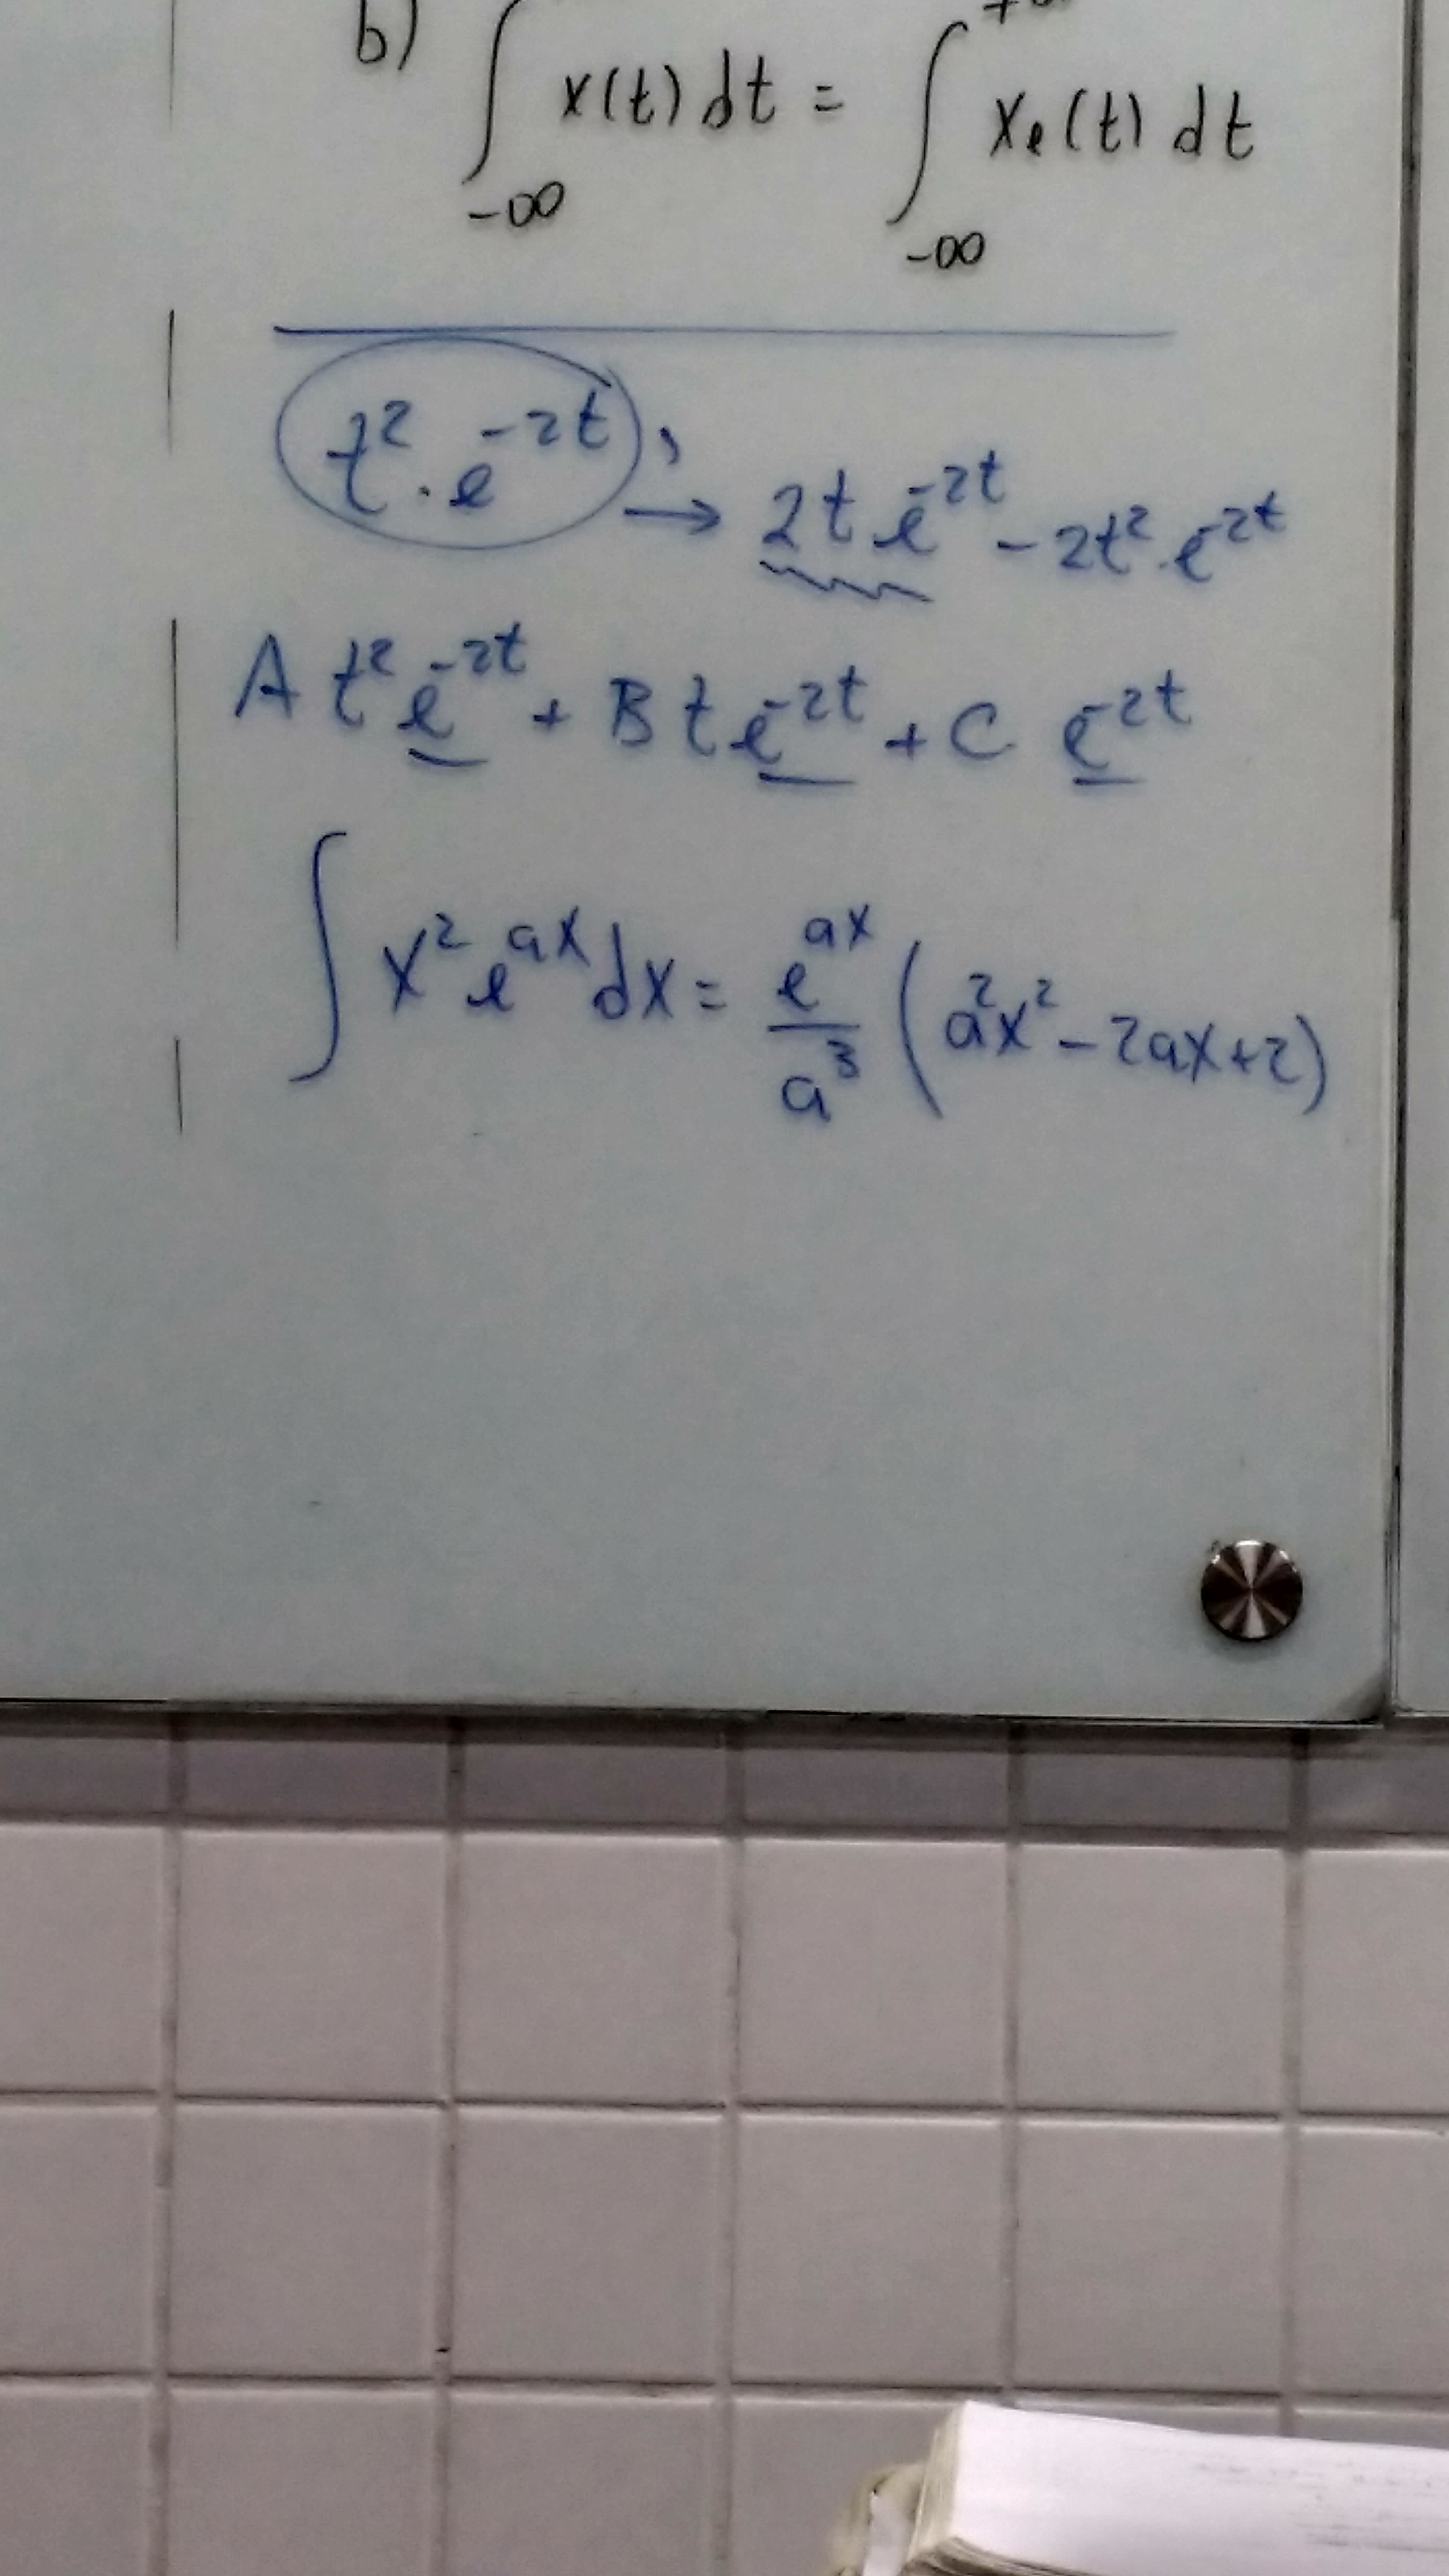 b) ∫_{-∞} x(t) dt = ∫_{-∞}^{+∞} xₑ(t) dt
t² · e^{-2t} , → 2t e^{-2t} - 2t² · e^{-2t}
A t² e^{-2t} + B t e^{-2t} + C e^{-2t}
∫ x² e^{ax} dx = e^{ax}/a³ (a²x² - 2ax + 2)